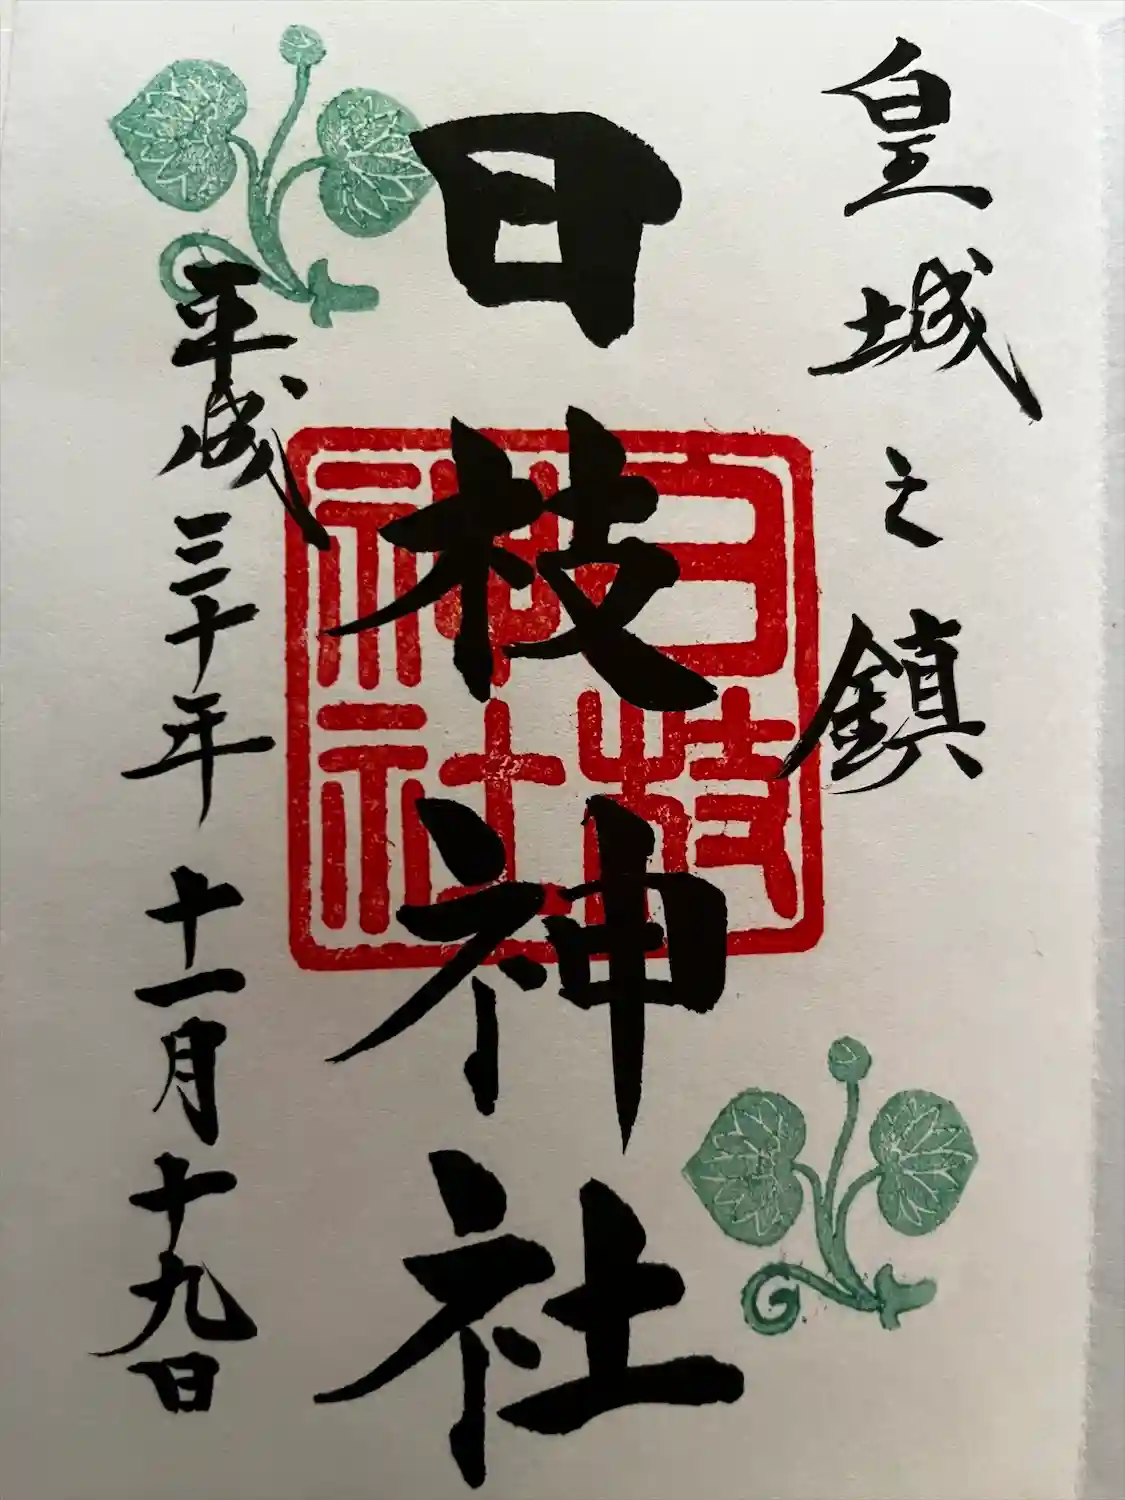 皇城之鎮
日枝神社
日枝神社
平成三十年十一月十九日